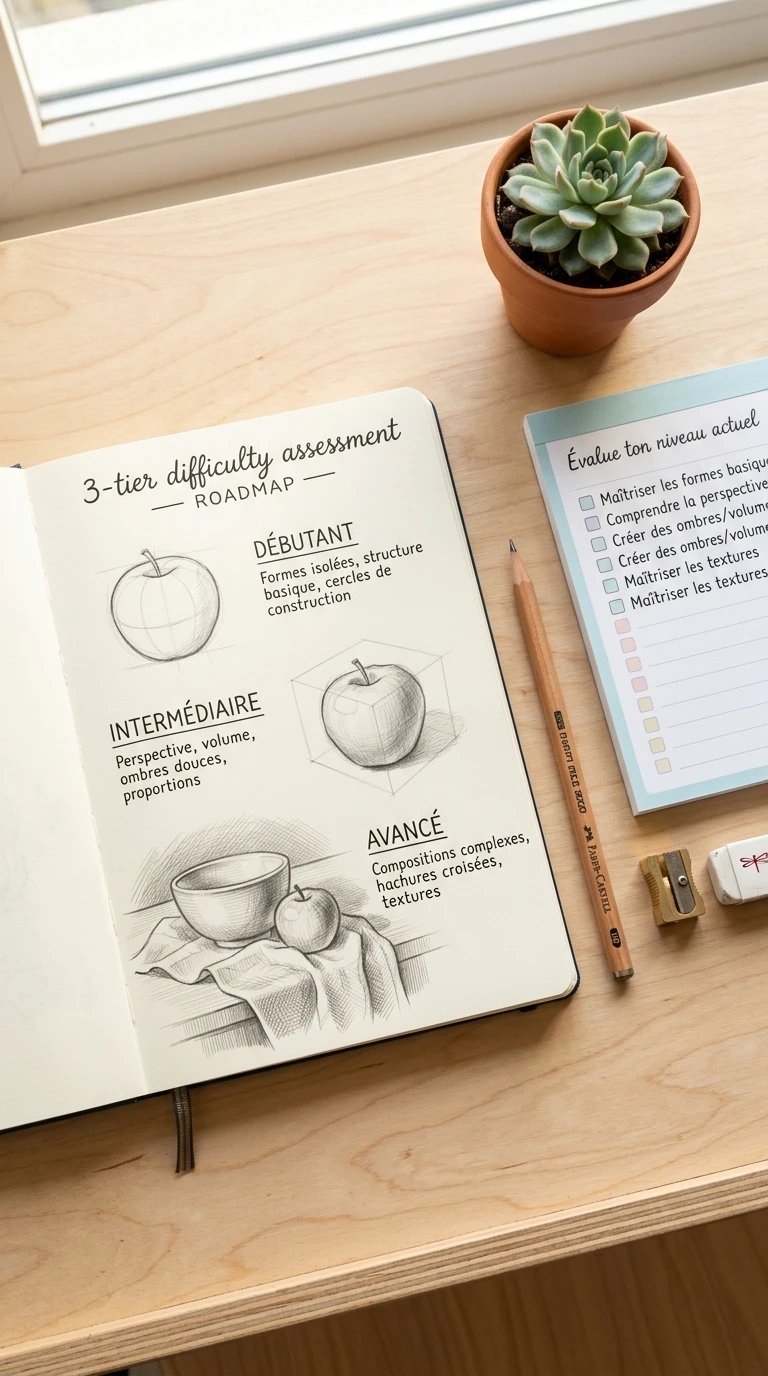 3-tier difficulty assessment
ROADMAP
DÉBUTANT
Formes isolées, structure
basique, cercles de
construction
INTERMÉDIAIRE
Perspective, volume,
ombres douces,
proportions
AVANCÉ
Compositions complexes,
hachures croisées,
textures
Évalue ton niveau actuel
Maîtriser les formes basique
Comprendre la perspective
Créer des ombres/volume
Créer des ombres/volume
Maîtriser les textures
Maîtriser les textures
FABER-CASTELL